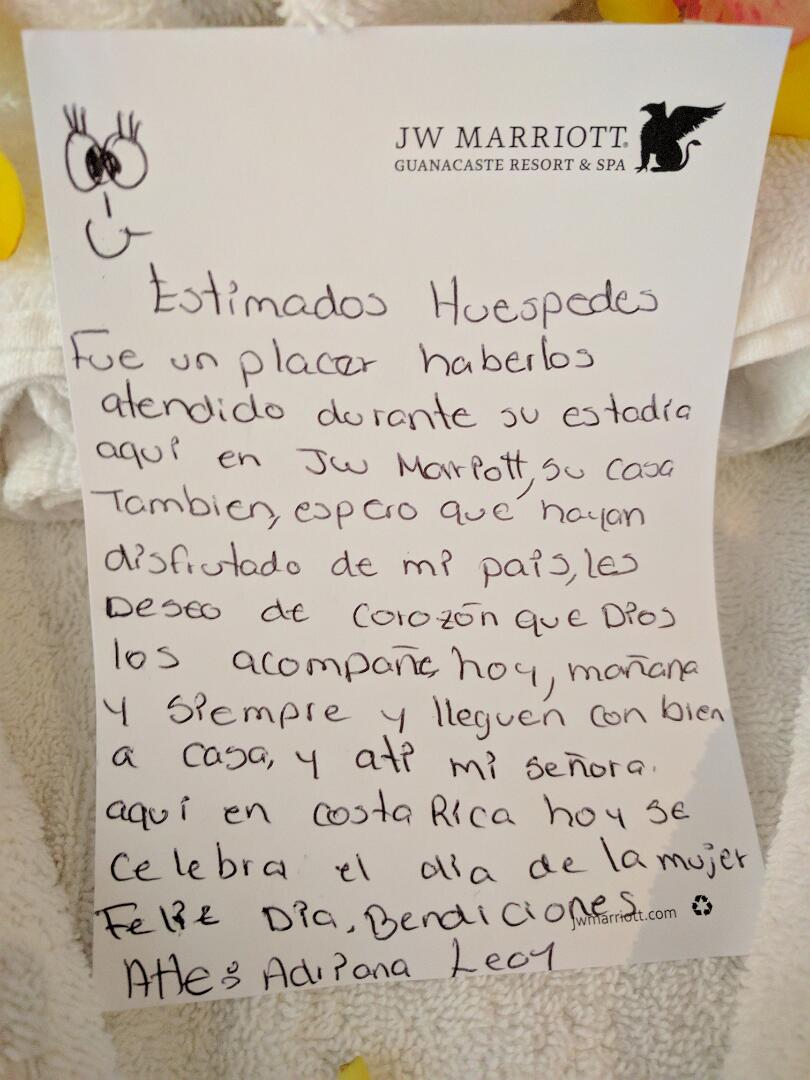 JW MARRIOTT®
GUANACASTE RESORT & SPA
Estimados Huespedes
Fue un placer haberlos
atendido durante su estadía
aquí en JW Marriott, su casa
Tambien, espero que hayan
disfrutado de mi país, les
Deseo de corozón que Dios
los acompañe hoy, mañana
y siempre y lleguen con bien
a casa, y ati mi señora.
aquí en costa Rica hoy se
celebra el día de la mujer
Feliz Día, Bendiciones
jwmarriott.com
Adriana Leoy